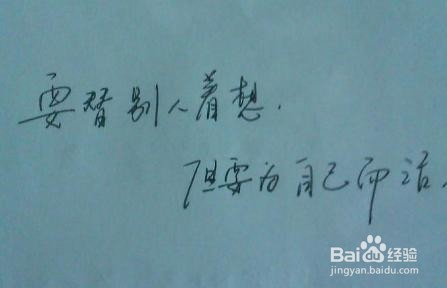 要替别人着想.
但要为自己而活.
Baidu经验
jingyan.baidu.com